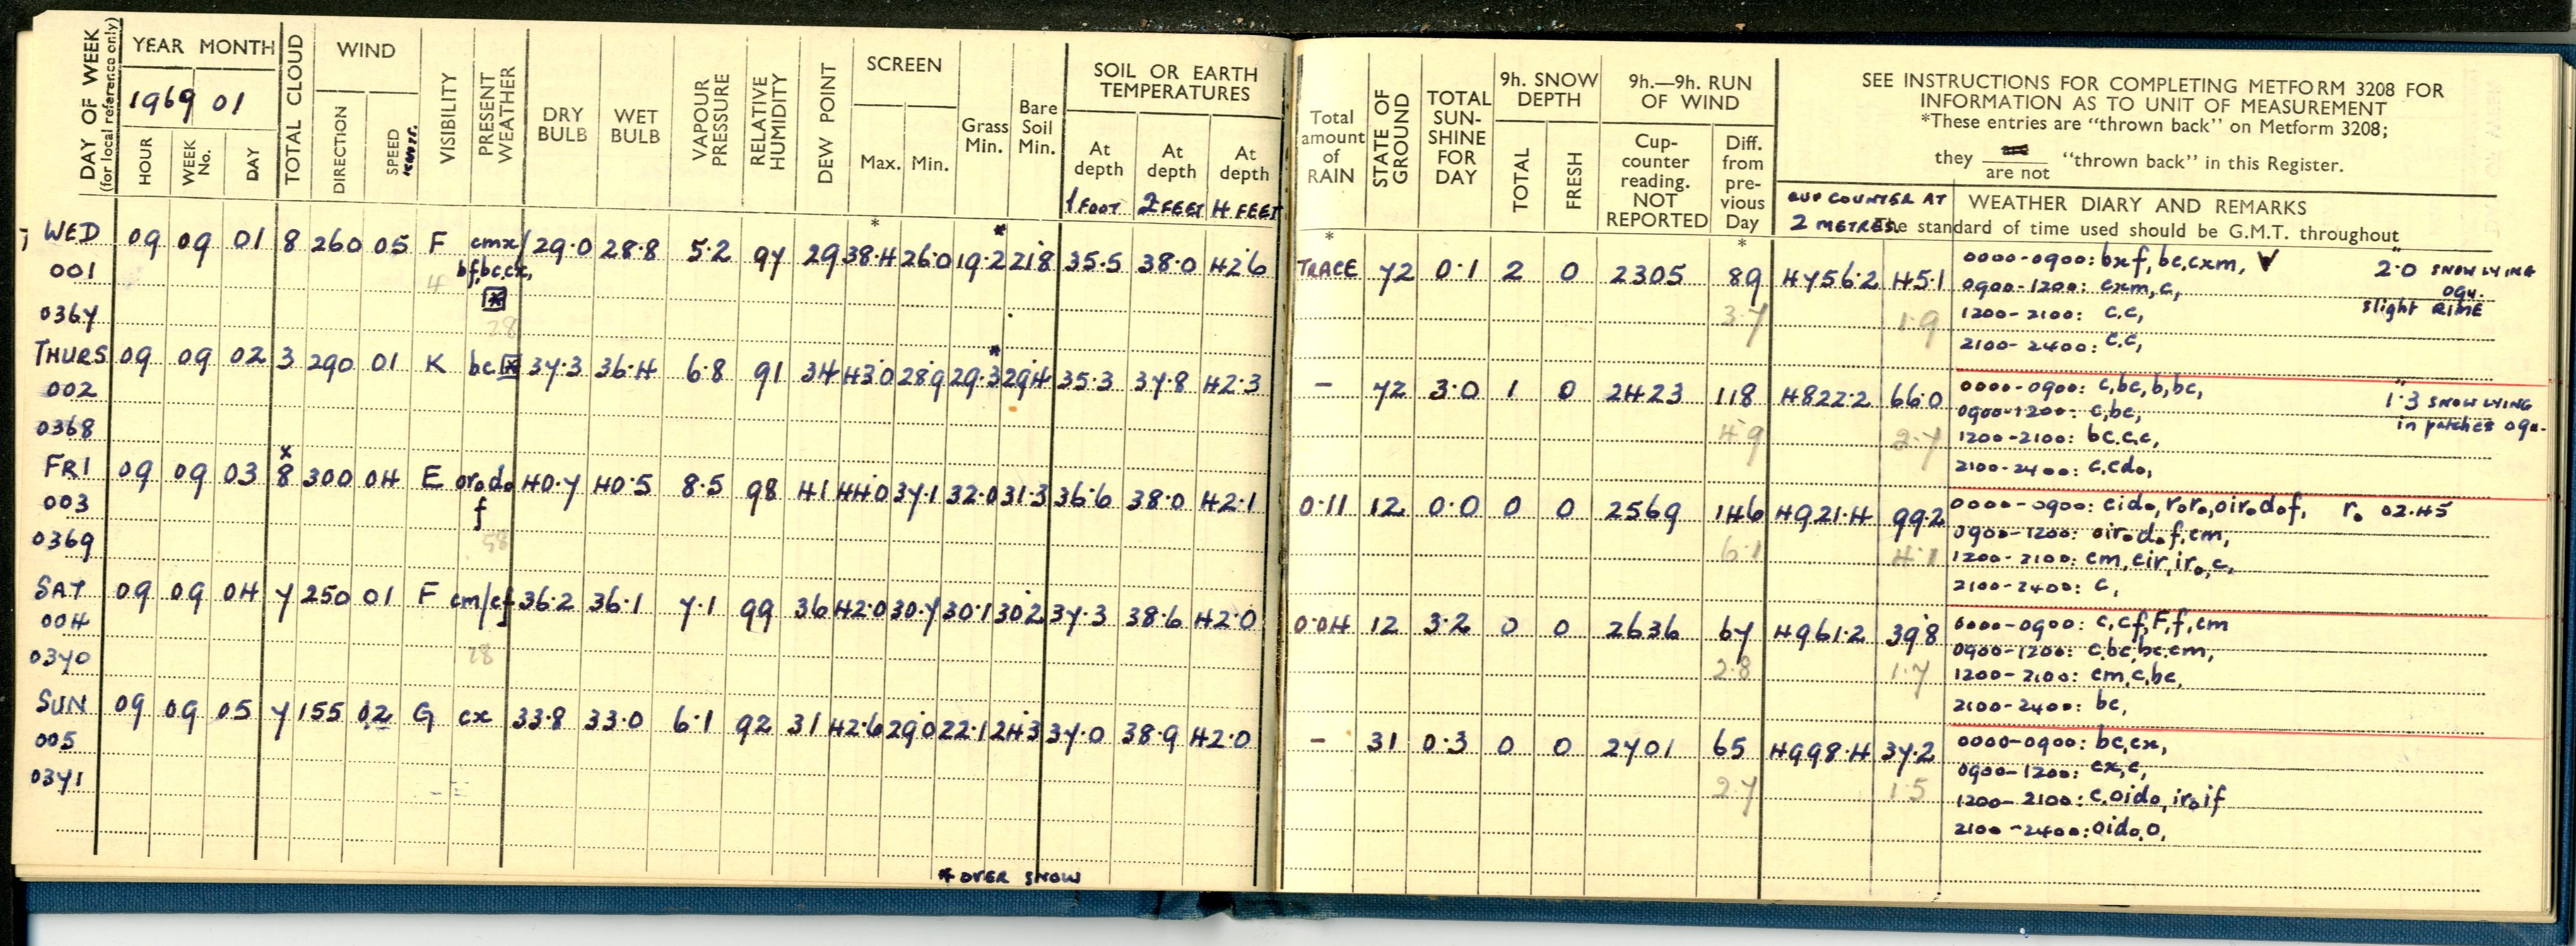 DAY OF WEEK
(for local reference only)
YEAR MONTH
1969 01
HOUR
WEEK No.
DAY
TOTAL CLOUD
WIND
DIRECTION
SPEED
VISIBILITY
PRESENT WEATHER
DRY BULB
WET BULB
VAPOUR PRESSURE
RELATIVE HUMIDITY
DEW POINT
SCREEN
Max. Min.
Grass Min.
Bare Soil Min.
SOIL OR EARTH
TEMPERATURES
At depth At depth At depth
1 FOOT 2 FEET 4 FEET
Total amount of RAIN
STATE OF GROUND
TOTAL SUN-SHINE FOR DAY
9h. SNOW DEPTH
TOTAL FRESH
9h.—9h. RUN OF WIND
Cup-counter reading. NOT REPORTED
Diff. from pre-vious Day
SEE INSTRUCTIONS FOR COMPLETING METFORM 3208 FOR
INFORMATION AS TO UNIT OF MEASUREMENT
*These entries are "thrown back" on Metform 3208;
they are not "thrown back" in this Register.
CUP COUNTER AT
2 METRES
WEATHER DIARY AND REMARKS
The standard of time used should be G.M.T. throughout
* * * *
WED 09 09 01 8 260 05 F cmx/ 29.0 28.8 5.2 97 29 38.4 26.0 19.2 21.8 35.5 38.0 42.6
001 bf,bc,cx,
4
0367
28
TRACE 72 0.1 2 0 2305 89 4756.2 45.1
3.7 1.9
0000-0900: bxf, bc,cxm, V 2.0" SNOW LYING
0900-1200: cxm,c, 09h.
1200-2100: c.c, slight RIME
2100-2400: c.c,
THURS 09 09 02 3 290 01 K bc 37.3 36.4 6.8 91 34 43.0 28.9 29.3 29.4 35.3 37.8 42.3
002
0368
– 72 3.0 1 0 2423 118 4822.2 66.0
4.9 2.7
0000-0900: c,bc,b,bc, 1.3" SNOW LYING
0900-1200: c,bc, in patches 09h.
1200-2100: bc.c.c,
2100-2400: c,cdo,
x
FRI 09 09 03 8 300 04 E orodo 40.7 40.5 8.5 98 41 44.0 37.1 32.0 31.3 36.6 38.0 42.1
003 f
0369
58
0.11 12 0.0 0 0 2569 146 4921.4 99.2
6.1 4.1
0000-0900: cido, roro, oirodof, ro 02.45
0900-1200: oirodof,cm,
1200-2100: cm,cir,iro,c,
2100-2400: c,
SAT 09 09 04 7 250 01 F cm/cf 36.2 36.1 7.1 99 36 42.0 30.7 30.1 30.2 37.3 38.6 42.0
004
0370
18
0.04 12 3.2 0 0 2636 67 4961.2 39.8
2.8 1.7
0000-0900: c,cf,F,f,cm
0900-1200: c,bc,bc,cm,
1200-2100: cm,c,bc,
2100-2400: bc,
SUN 09 09 05 7 155 02 G cx 33.8 33.0 6.1 92 31 42.6 29.0 22.1 24.3 37.0 38.9 42.0
005
0371
– 31 0.3 0 0 2701 65 4998.4 37.2
2.7 1.5
0000-0900: bc,cx,
0900-1200: cx,c,
1200-2100: c,oido,iroif
2100-2400: oido,o,
* OVER SNOW